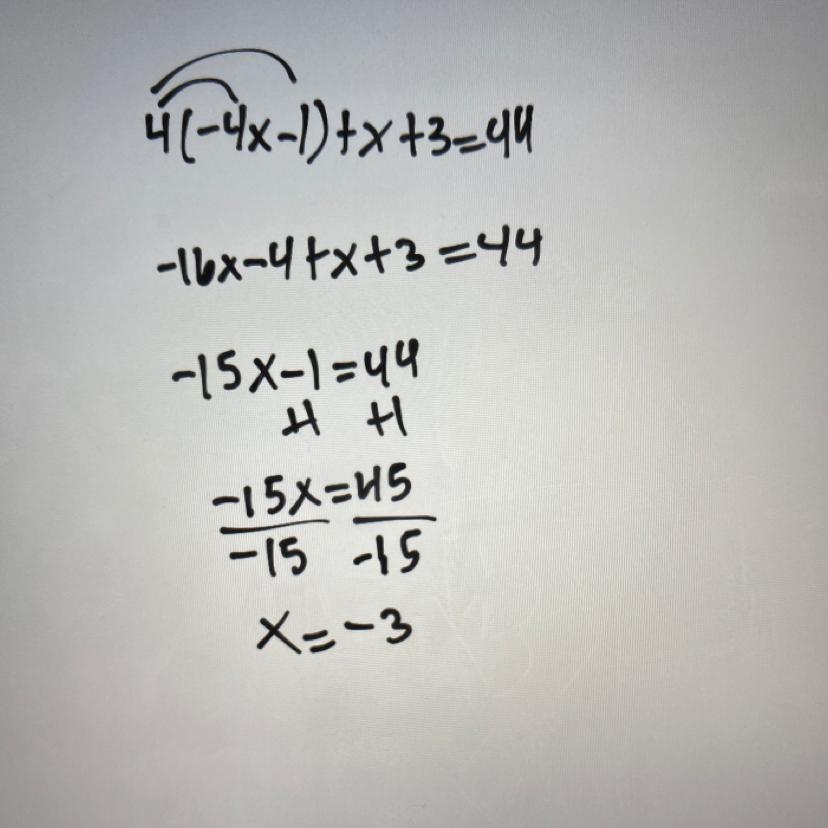 4(-4x-1)+x+3=44
-16x-4+x+3=44
-15x-1=44
+1 +1
-15x=45
-15 -15
x=-3